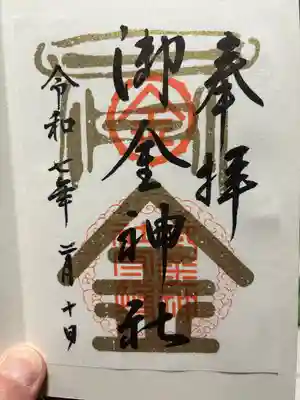 奉拝
御金神社
令和七年 二月 十日